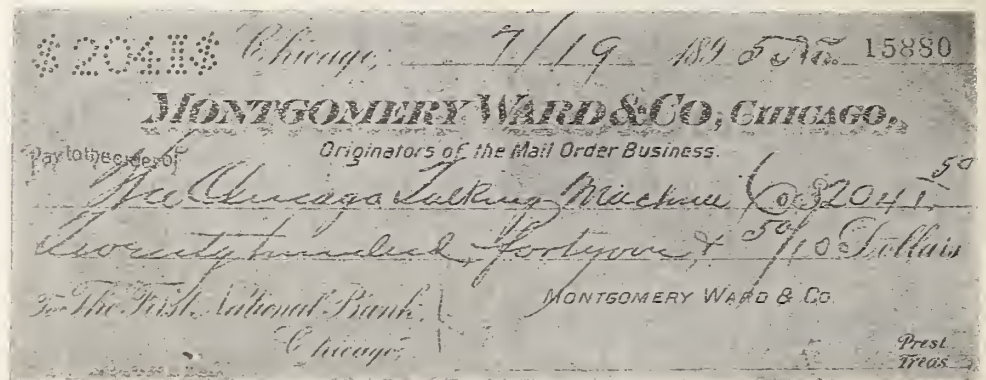 $2041$ Chicago, 7/19 1895 No. 15880
MONTGOMERY WARD & CO., CHICAGO,
Originators of the Mail Order Business.
Pay to the order of
The Chicago Talking Machine Co $2041.50
Twenty hundred, forty one, & 50/10 Dollars
To The First National Bank, MONTGOMERY WARD & CO.
Chicago,
Prest
Treas.